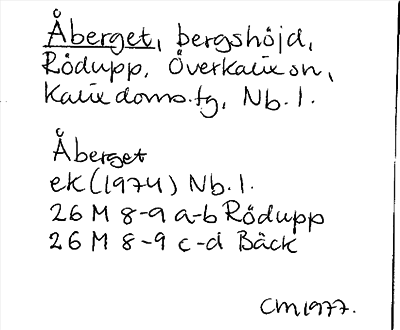 Åberget, bergshöjd,
Rödupp, Överkalix sn,
Kalix doms.tg, Nb.l.
Åberget
ek (1974) Nb.l.
26 M 8-9 a-b Rödupp
26 M 8-9 c-d Bäck
CM1977.